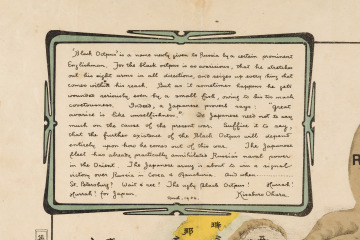 "Black Octopus" is a name newly given to Russia by a certain prominent
Englishman. For the black octopus is so avaricious, that he stretches
out his eight arms in all directions, and seizes up every thing that
comes within his reach. But as it sometimes happens he gets
wounded seriously even by a small fish, owing to his too much
covetousness. Indeed, a Japanese proverb says: "Great
avarice is like unselfishness." We Japanese need not to say
much on the cause of the present war. Suffice it to say,
that the further existence of the Black Octopus will depend
entirely upon how he comes out of this war. The Japanese
fleet has already practically annihilated Russia's naval power
in the Orient. The Japanese army is about to win a signal
victory over Russia in Corea & Manchuria. And when......
St. Petersburg? Wait & see! The ugly Black Octopus! Hurrah!
Hurrah! for Japan. Kisaburo Ohara.
March, 1904.
R